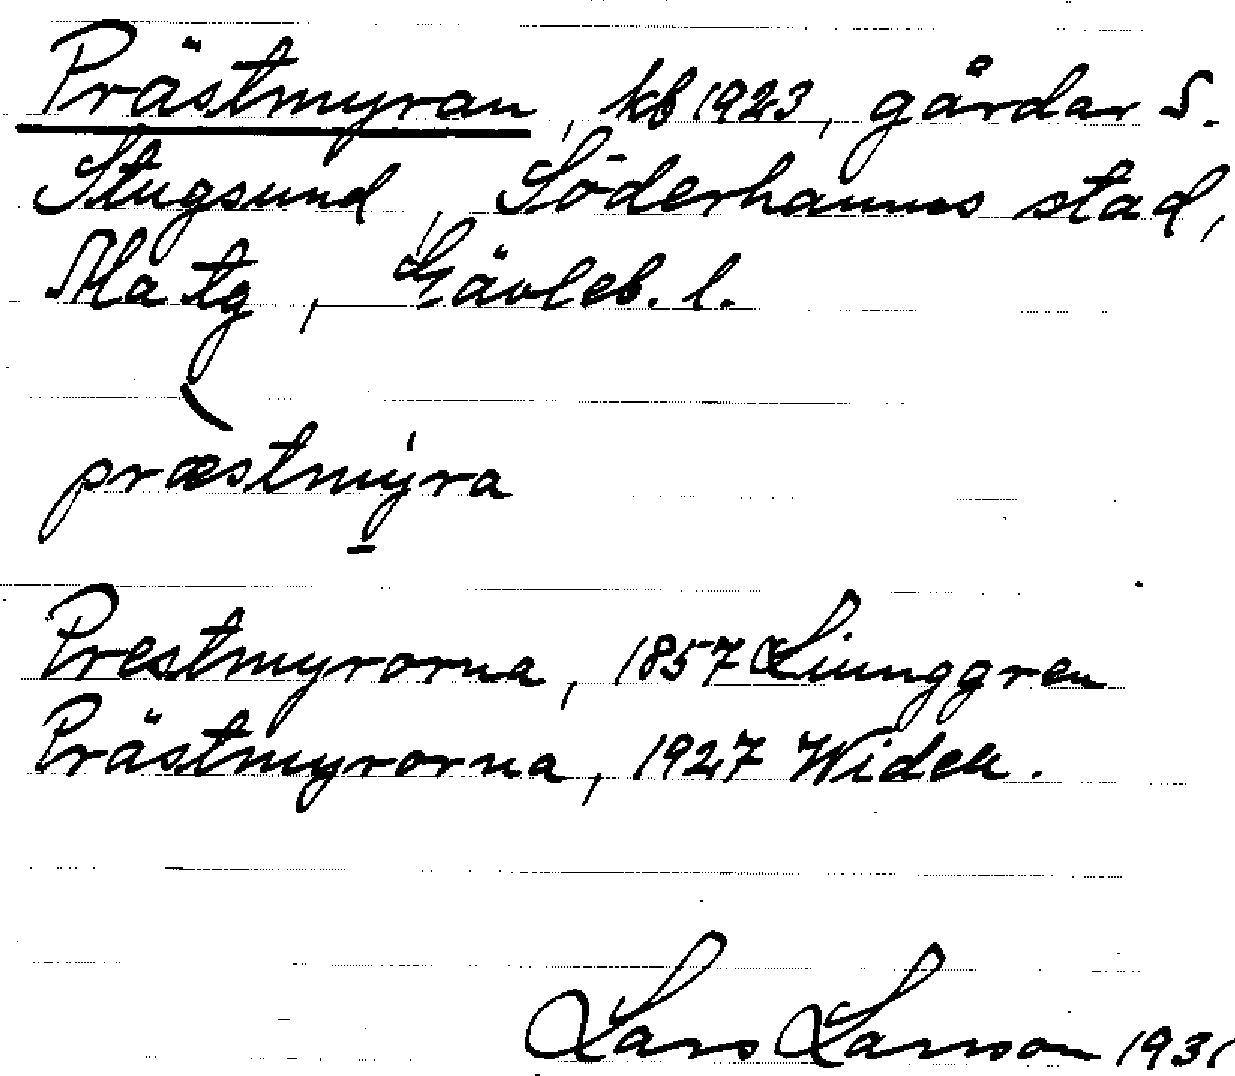 Prästmyran, kb 1923, gårdar S.
Stugsund, Söderhamns stad,
Ala tg, Gävleb. l.
præstmýra
Prestmyrorna, 1857 Ljunggren
Prästmyrorna, 1927 Widén.
Lars Larsson 1931